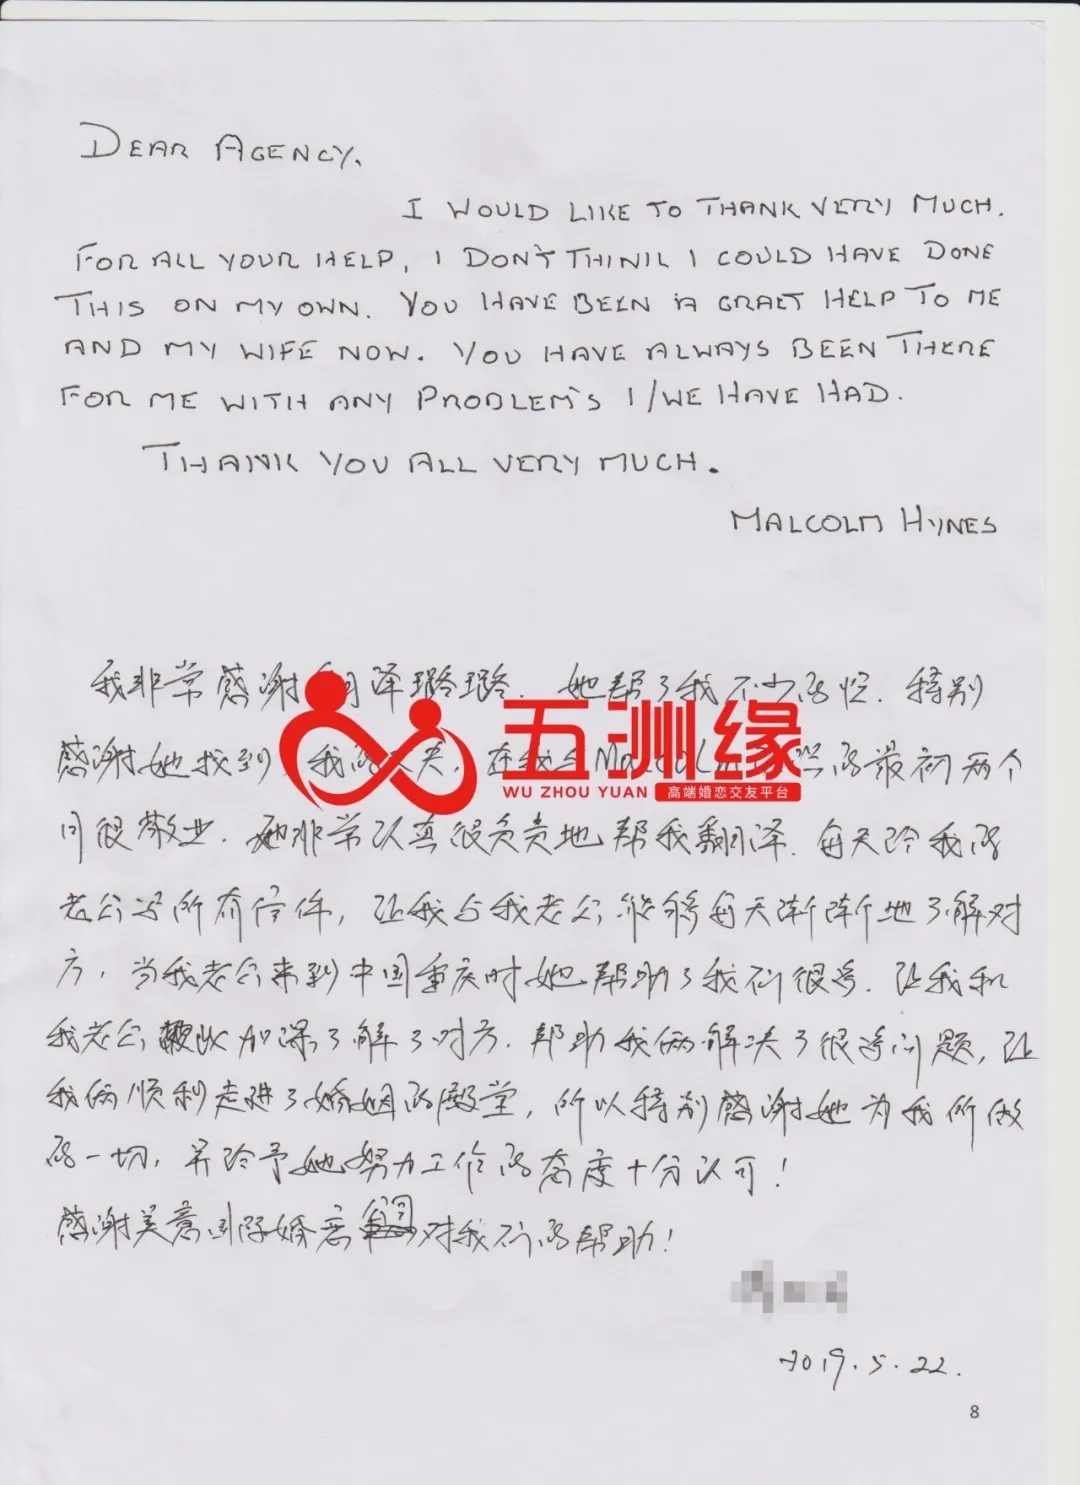 DEAR AGENCY.
I WOULD LIKE TO THANK VERY MUCH.
FOR ALL YOUR HELP, I DON'T THINK I COULD HAVE DONE
THIS ON MY OWN. YOU HAVE BEEN A GRAET HELP TO ME
AND MY WIFE NOW. YOU HAVE ALWAYS BEEN THERE
FOR ME WITH ANY PROBLEM'S I/WE HAVE HAD.
THANK YOU ALL VERY MUCH.
MALCOLM HYNES
我非常感谢翻译璐璐. 她帮了我不少的忙. 特别
感谢她找到了我的丈夫, 在我与
五洲缘
WU ZHOU YUAN 高端婚恋交友平台
的最初两个
月很敬业. 她非常认真很负责地帮我翻译. 每天给我的
老公写所有信件, 让我与我老公能够每天渐渐地了解对
方, 当我老公来到中国重庆时她帮助了我们很多. 让我和
我老公彼此加深了解了对方. 帮助我俩解决了很多问题, 让
我俩顺利走进了婚姻的殿堂, 所以特别感谢她为我所做
的一切, 并给予她努力工作的态度十分认可!
感谢美意国际婚恋 对我们的帮助!
2019.5.22.
8